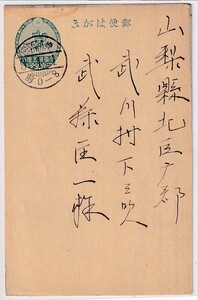 郵便はがき
山梨縣北巨摩郡
武川村下三吹
武藤
一様